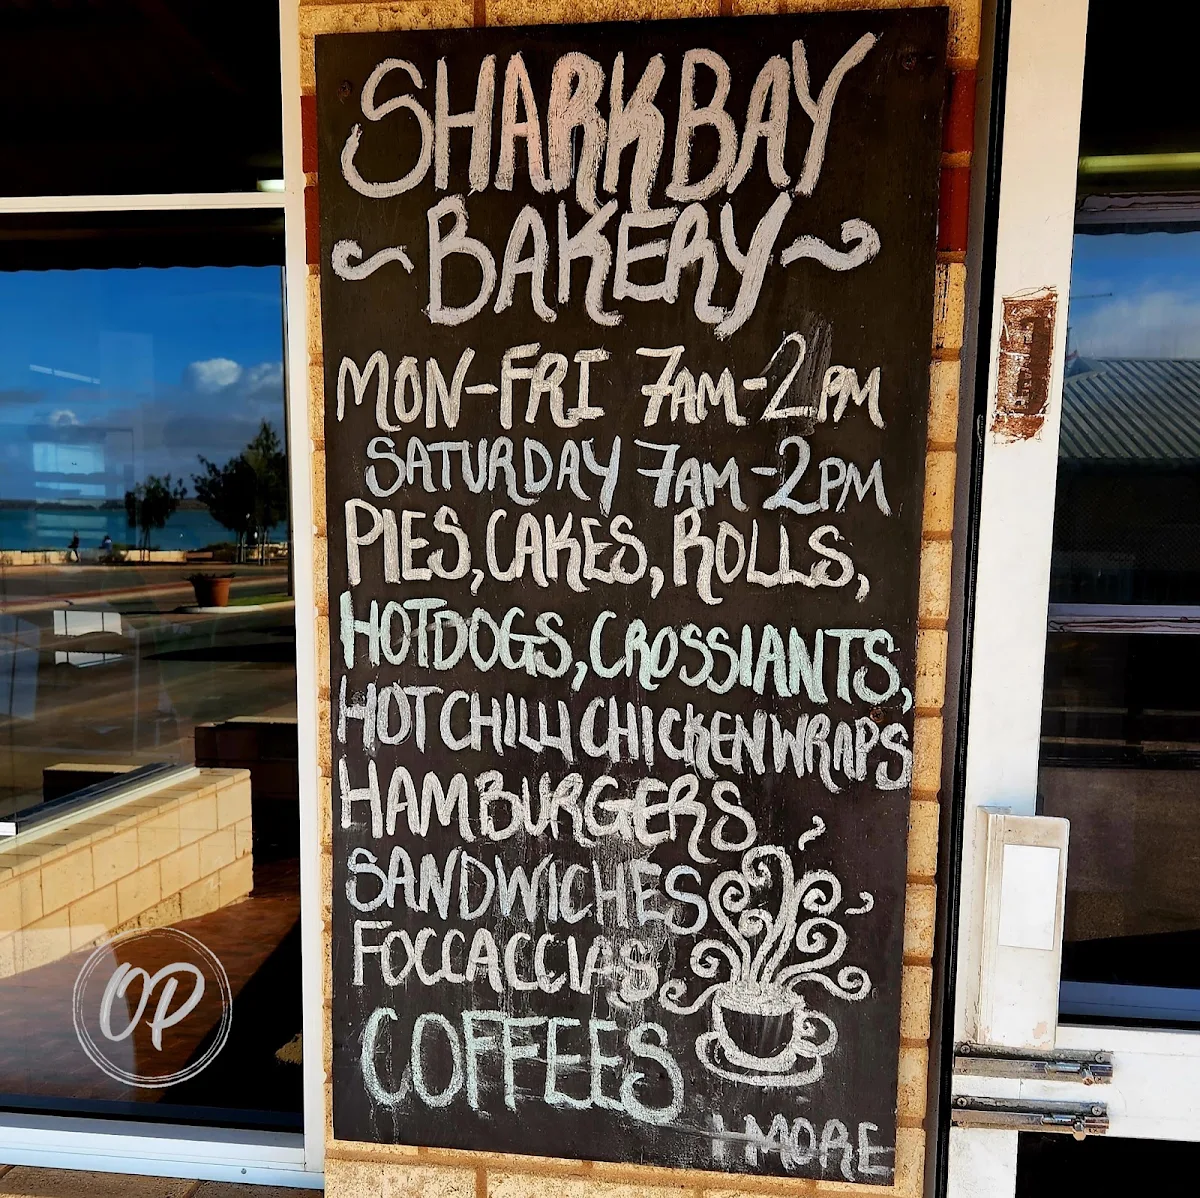 SHARKBAY
BAKERY
MON-FRI 7AM-2PM
SATURDAY 7AM-2PM
PIES, CAKES, ROLLS,
HOTDOGS, CROSSIANTS,
HOT CHILLI CHICKEN WRAPS
HAMBURGERS
SANDWICHES
FOCCACCIAS
COFFEES
MORE
OP